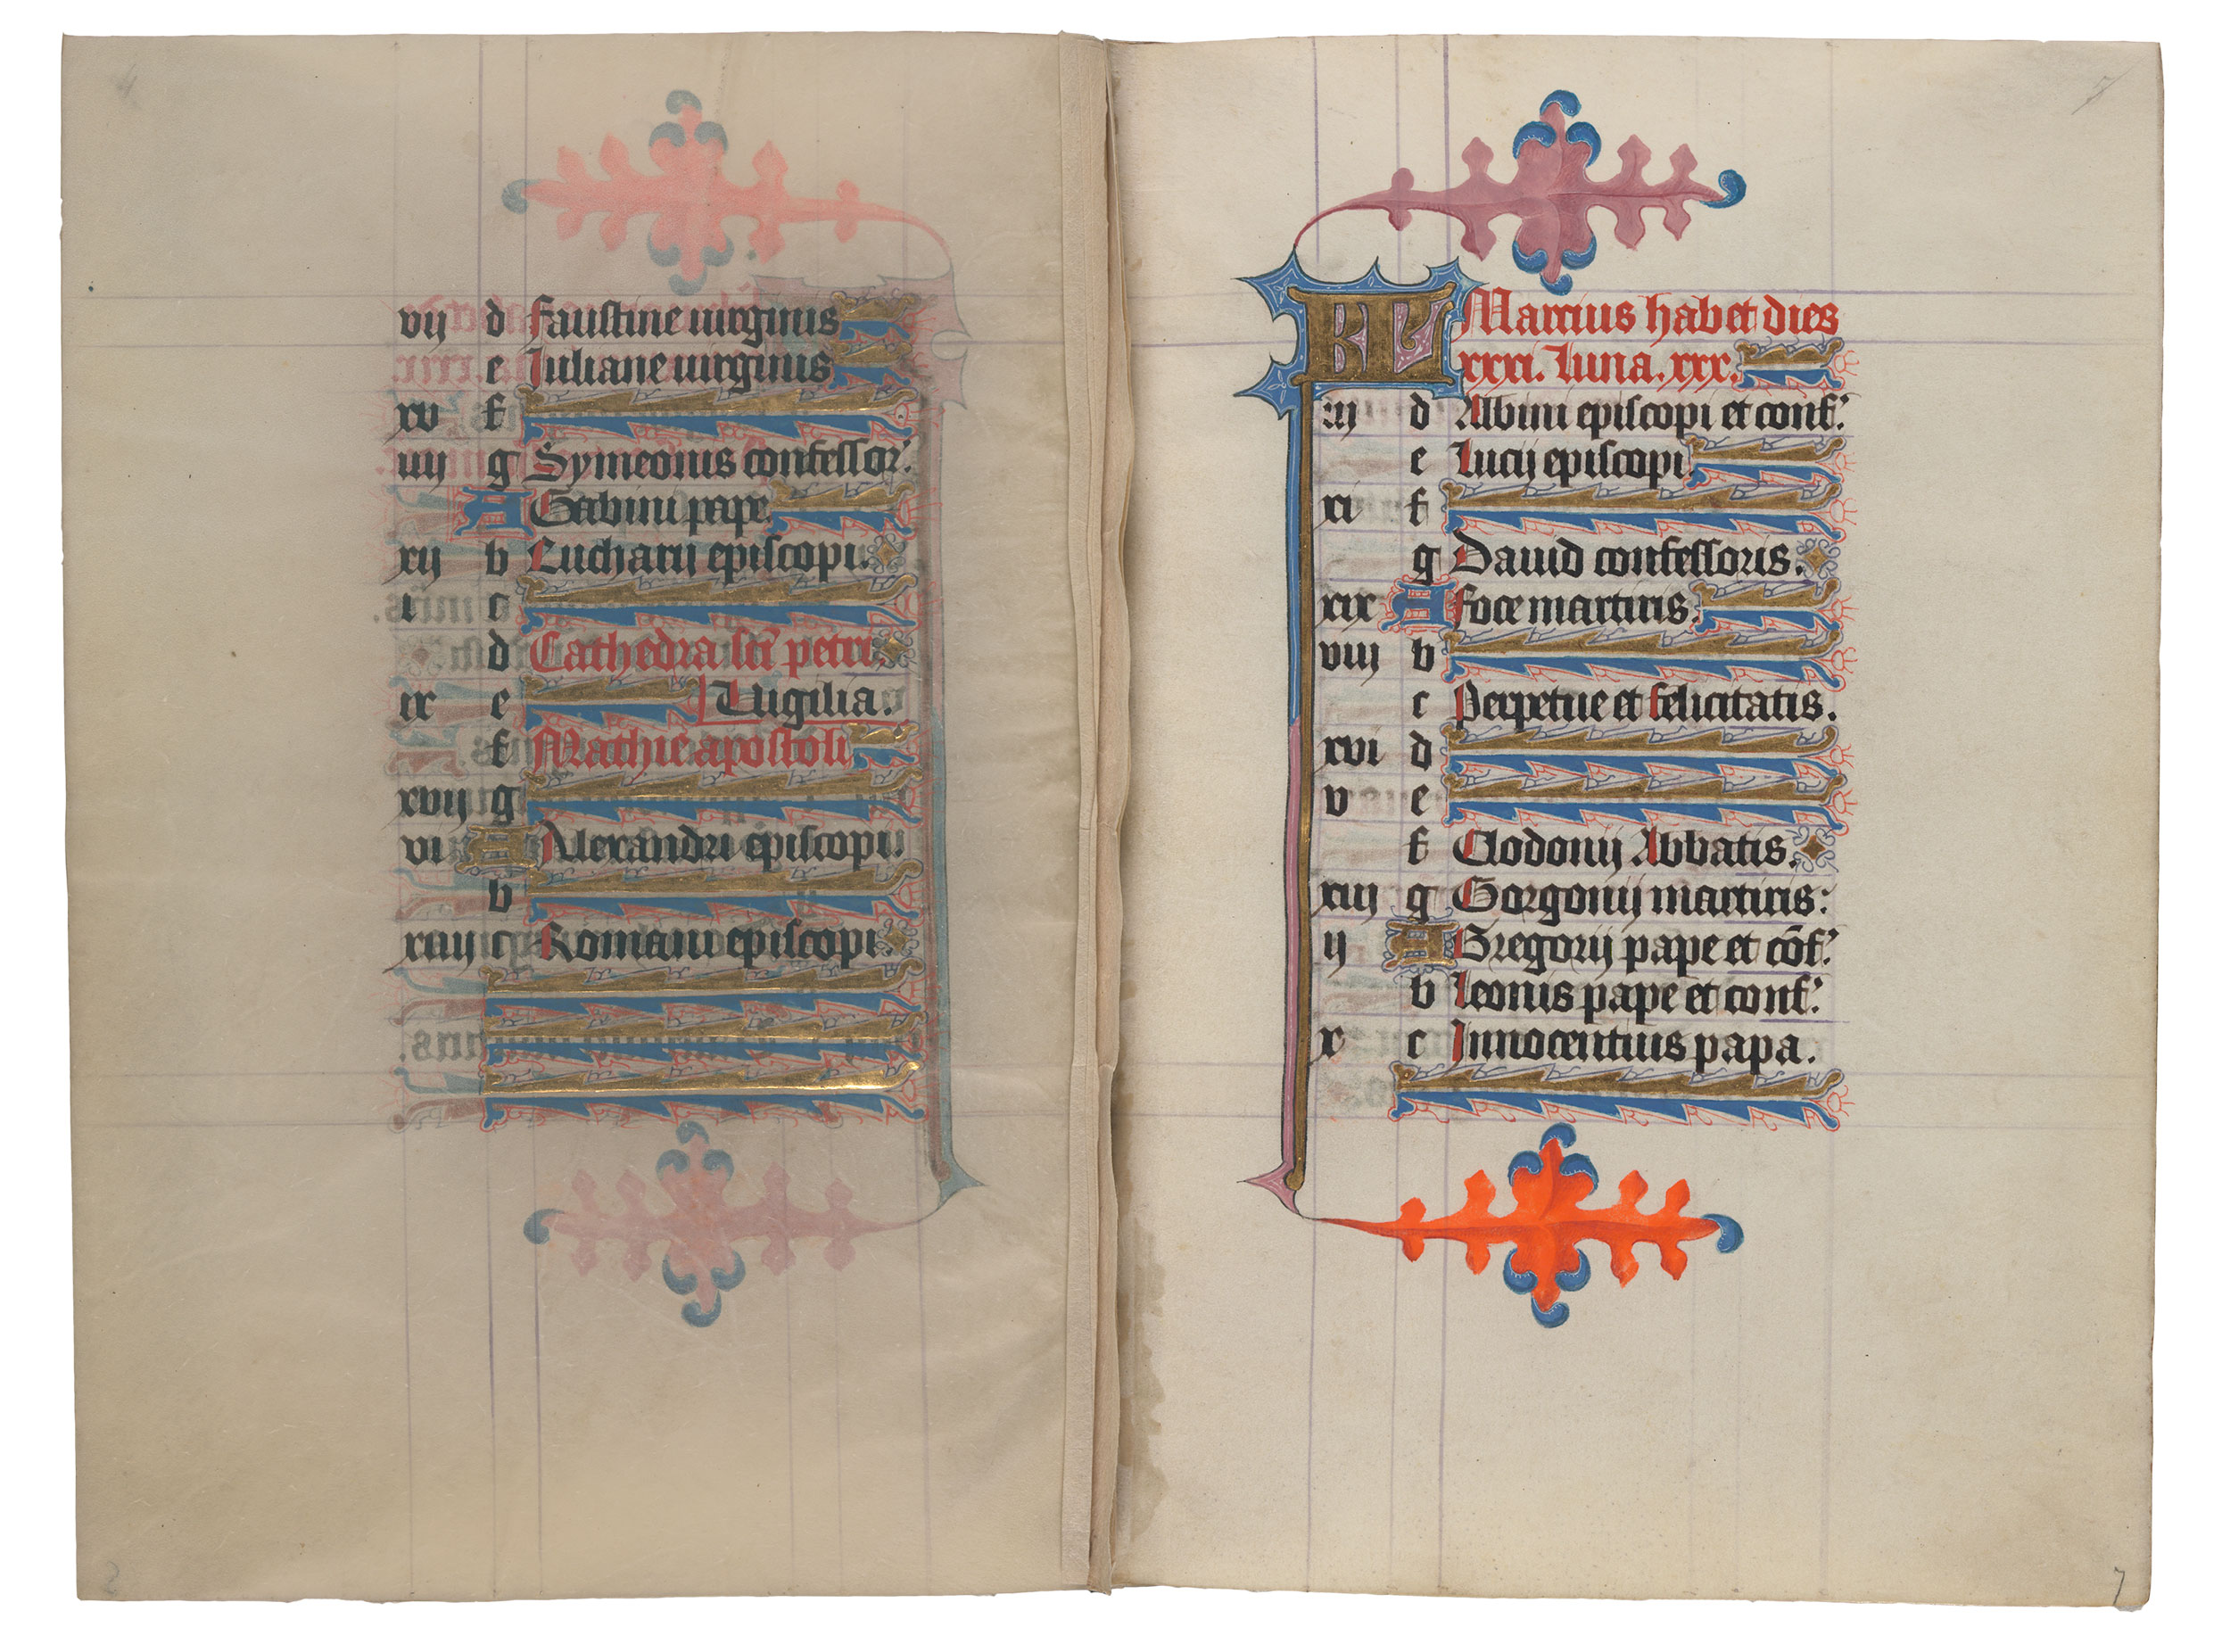 vij d Faustine uirginis
e Iuliane uirginis
xv f
iiij g Symeonis confessor.
A Gabini pape.
xij b Eucharij episcopi.
i c
d Cathedra sci petri.
ix e Uigilia.
f Mathie apostoli
xvij g
vi A Alexandri episcopi.
b
xiiij c Romani episcopi.
KL Marcius habet dies
xxxi. Luna. xxx.
iij d Albini episcopi et conf.
e Lucij episcopi
xi f
g Dauid confessoris.
xix A foce martiris.
viij b
c Perpetue et felicitatis.
xvi d
v e
f Clodonij Abbatis.
xiij g Gorgonij martiris:
ij A Gregorij pape et cōf.
b Leonis pape et conf.
x c Innocentius papa.
7